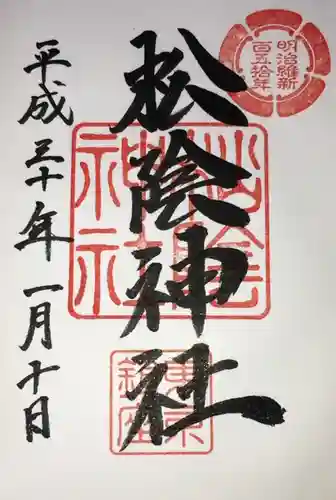 明治維新
百五拾年
松陰神社
平成三十年一月十日
松陰
神社
東京
鎮座